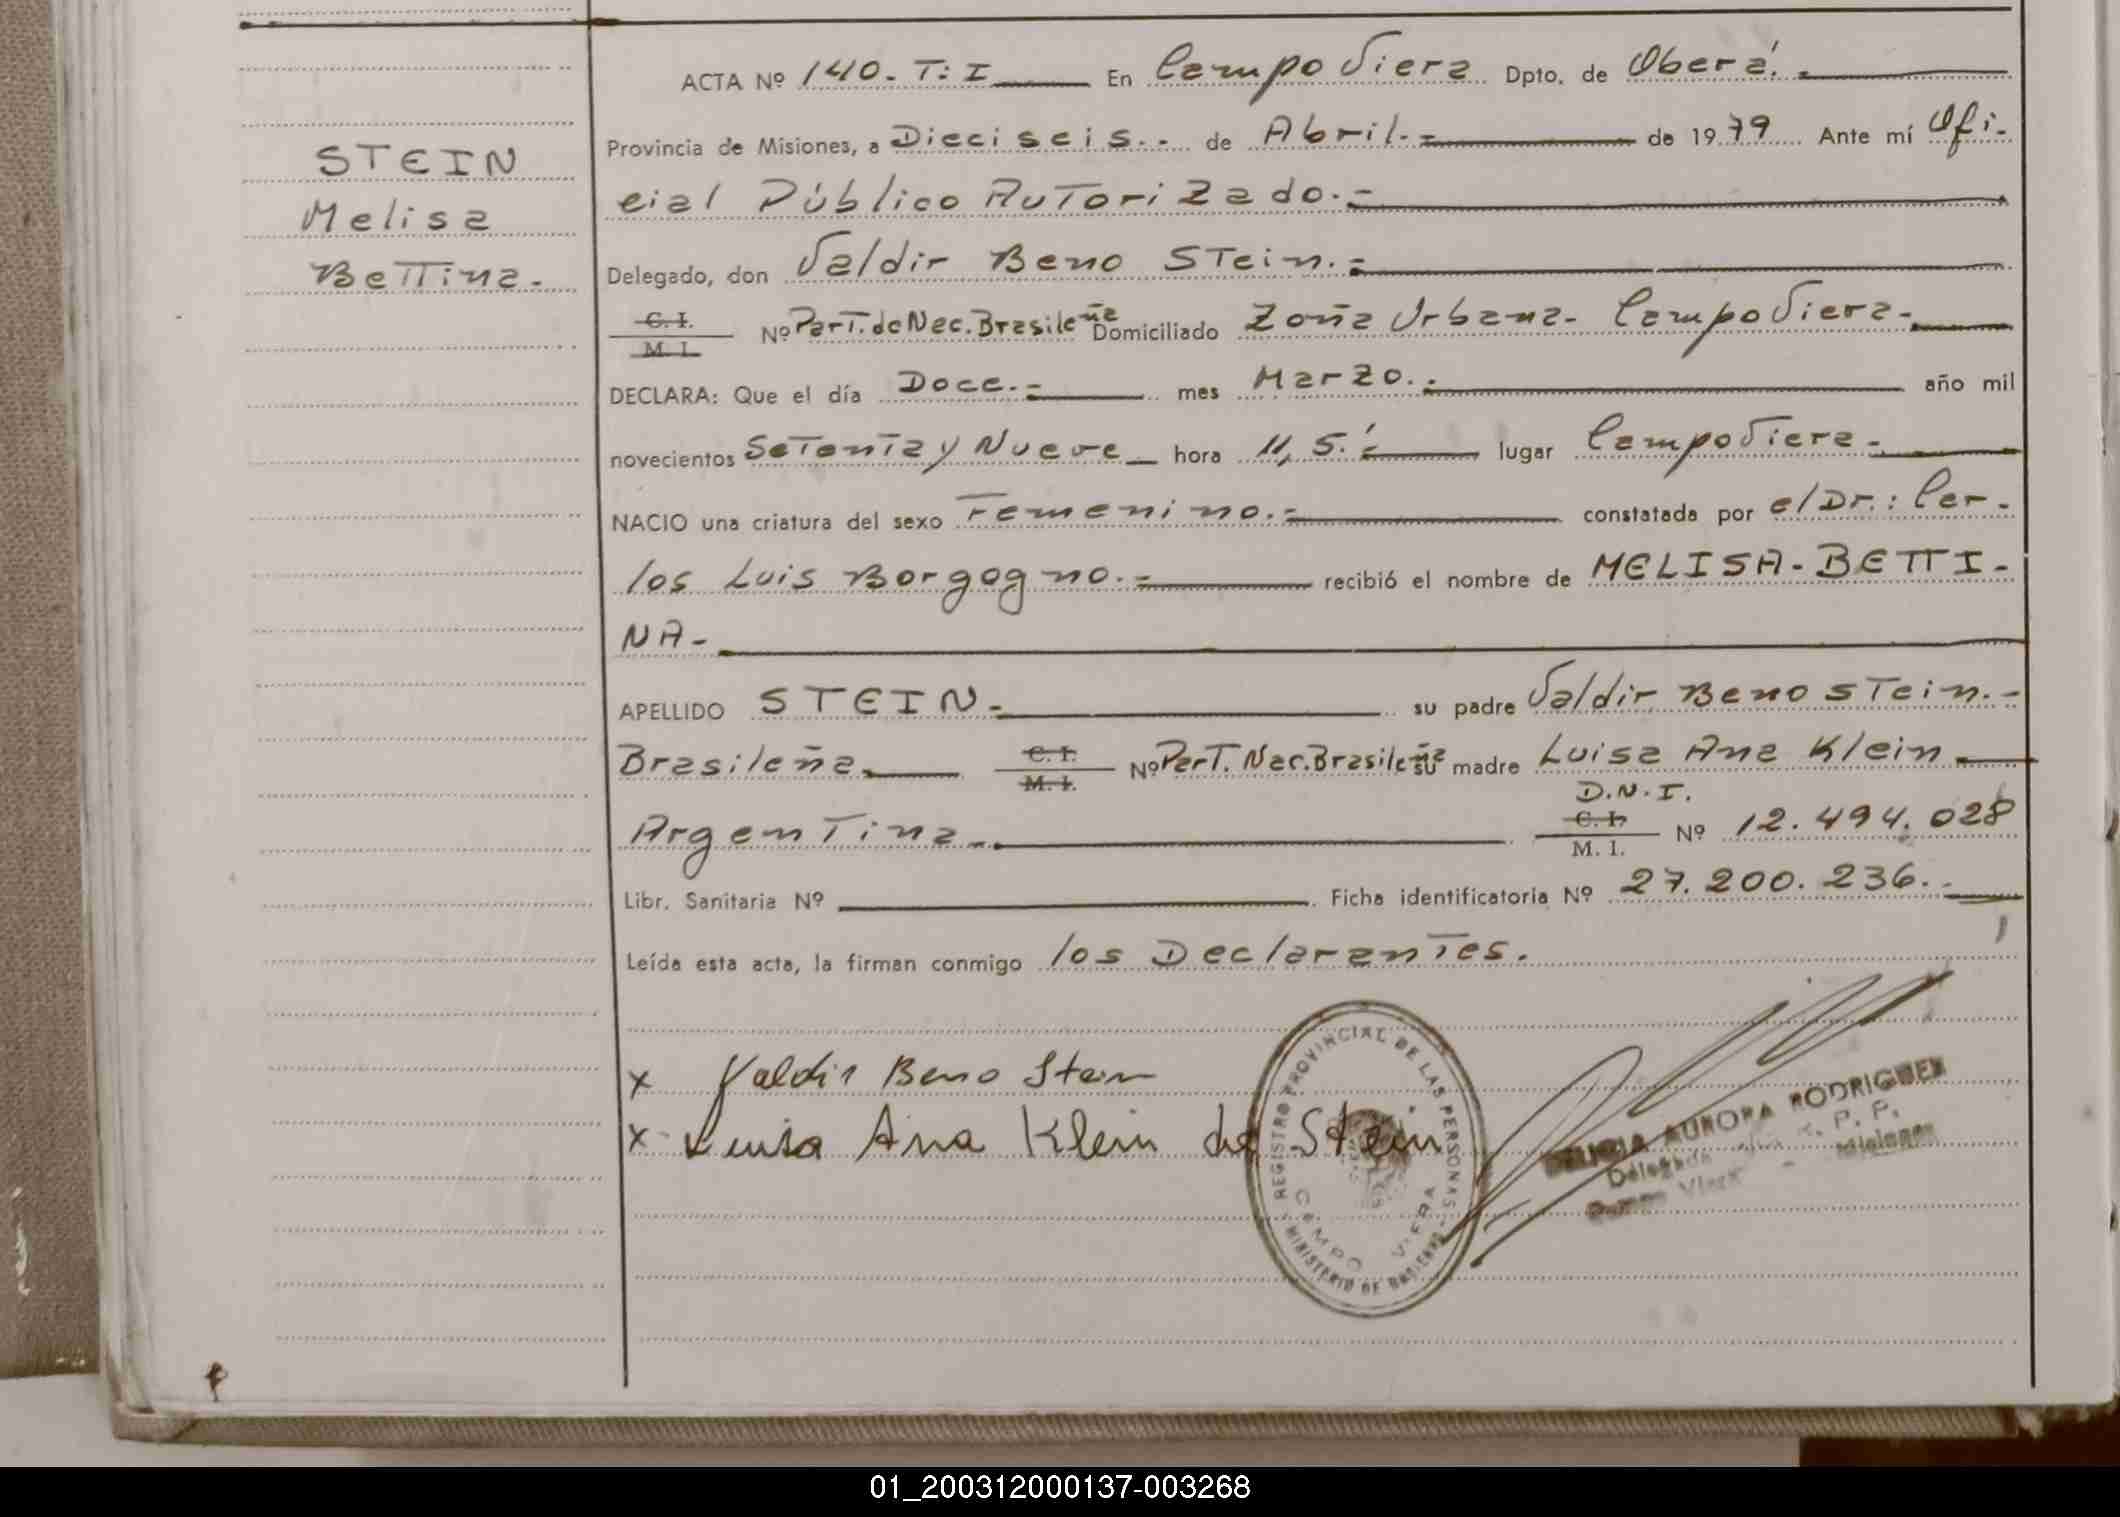 STEIN
Melisa
Bettina-
ACTA Nº 140. T: I En Campo Viera Dpto. de Oberá.-
Provincia de Misiones, a Dieciseis.- de Abril.- de 1979 Ante mí Ofi-
cial Público Autorizado.-
Delegado, don Valdir Beno Stein.-
C. I.
M. I.
Nº Part. de Nac. Brasileña Domiciliado Zona Urbana- Campo Viera-
DECLARA: Que el día Doce.- mes Marzo.- año mil
novecientos Setenta y Nueve hora 11,5.- lugar Campo Viera-
NACIO una criatura del sexo Femenino.- constatada por el Dr.: Car-
los Luis Borgogno.- recibió el nombre de MELISA-BETTI-
NA-
APELLIDO STEIN- su padre Valdir Beno Stein.-
Brasileña- C. I. M. I. Nº Part. Nac. Brasileña su madre Luisa Ana Klein-
D.N.I.
Argentina- C. I. M. I. Nº 12.494.028
Libr. Sanitaria Nº Ficha identificatoria Nº 27.200.236.-
Leída esta acta, la firman conmigo los Declarantes.
x Valdir Beno Stein
x Luisa Ana Klein de Stein
REGISTRO PROVINCIAL DE LAS PERSONAS
CAMPO VIERA
MINISTERIO DE GOBIERNO
AURORA RODRIGUEZ
Delegada R. P. P.
Campo Viera - Misiones
01_200312000137-003268